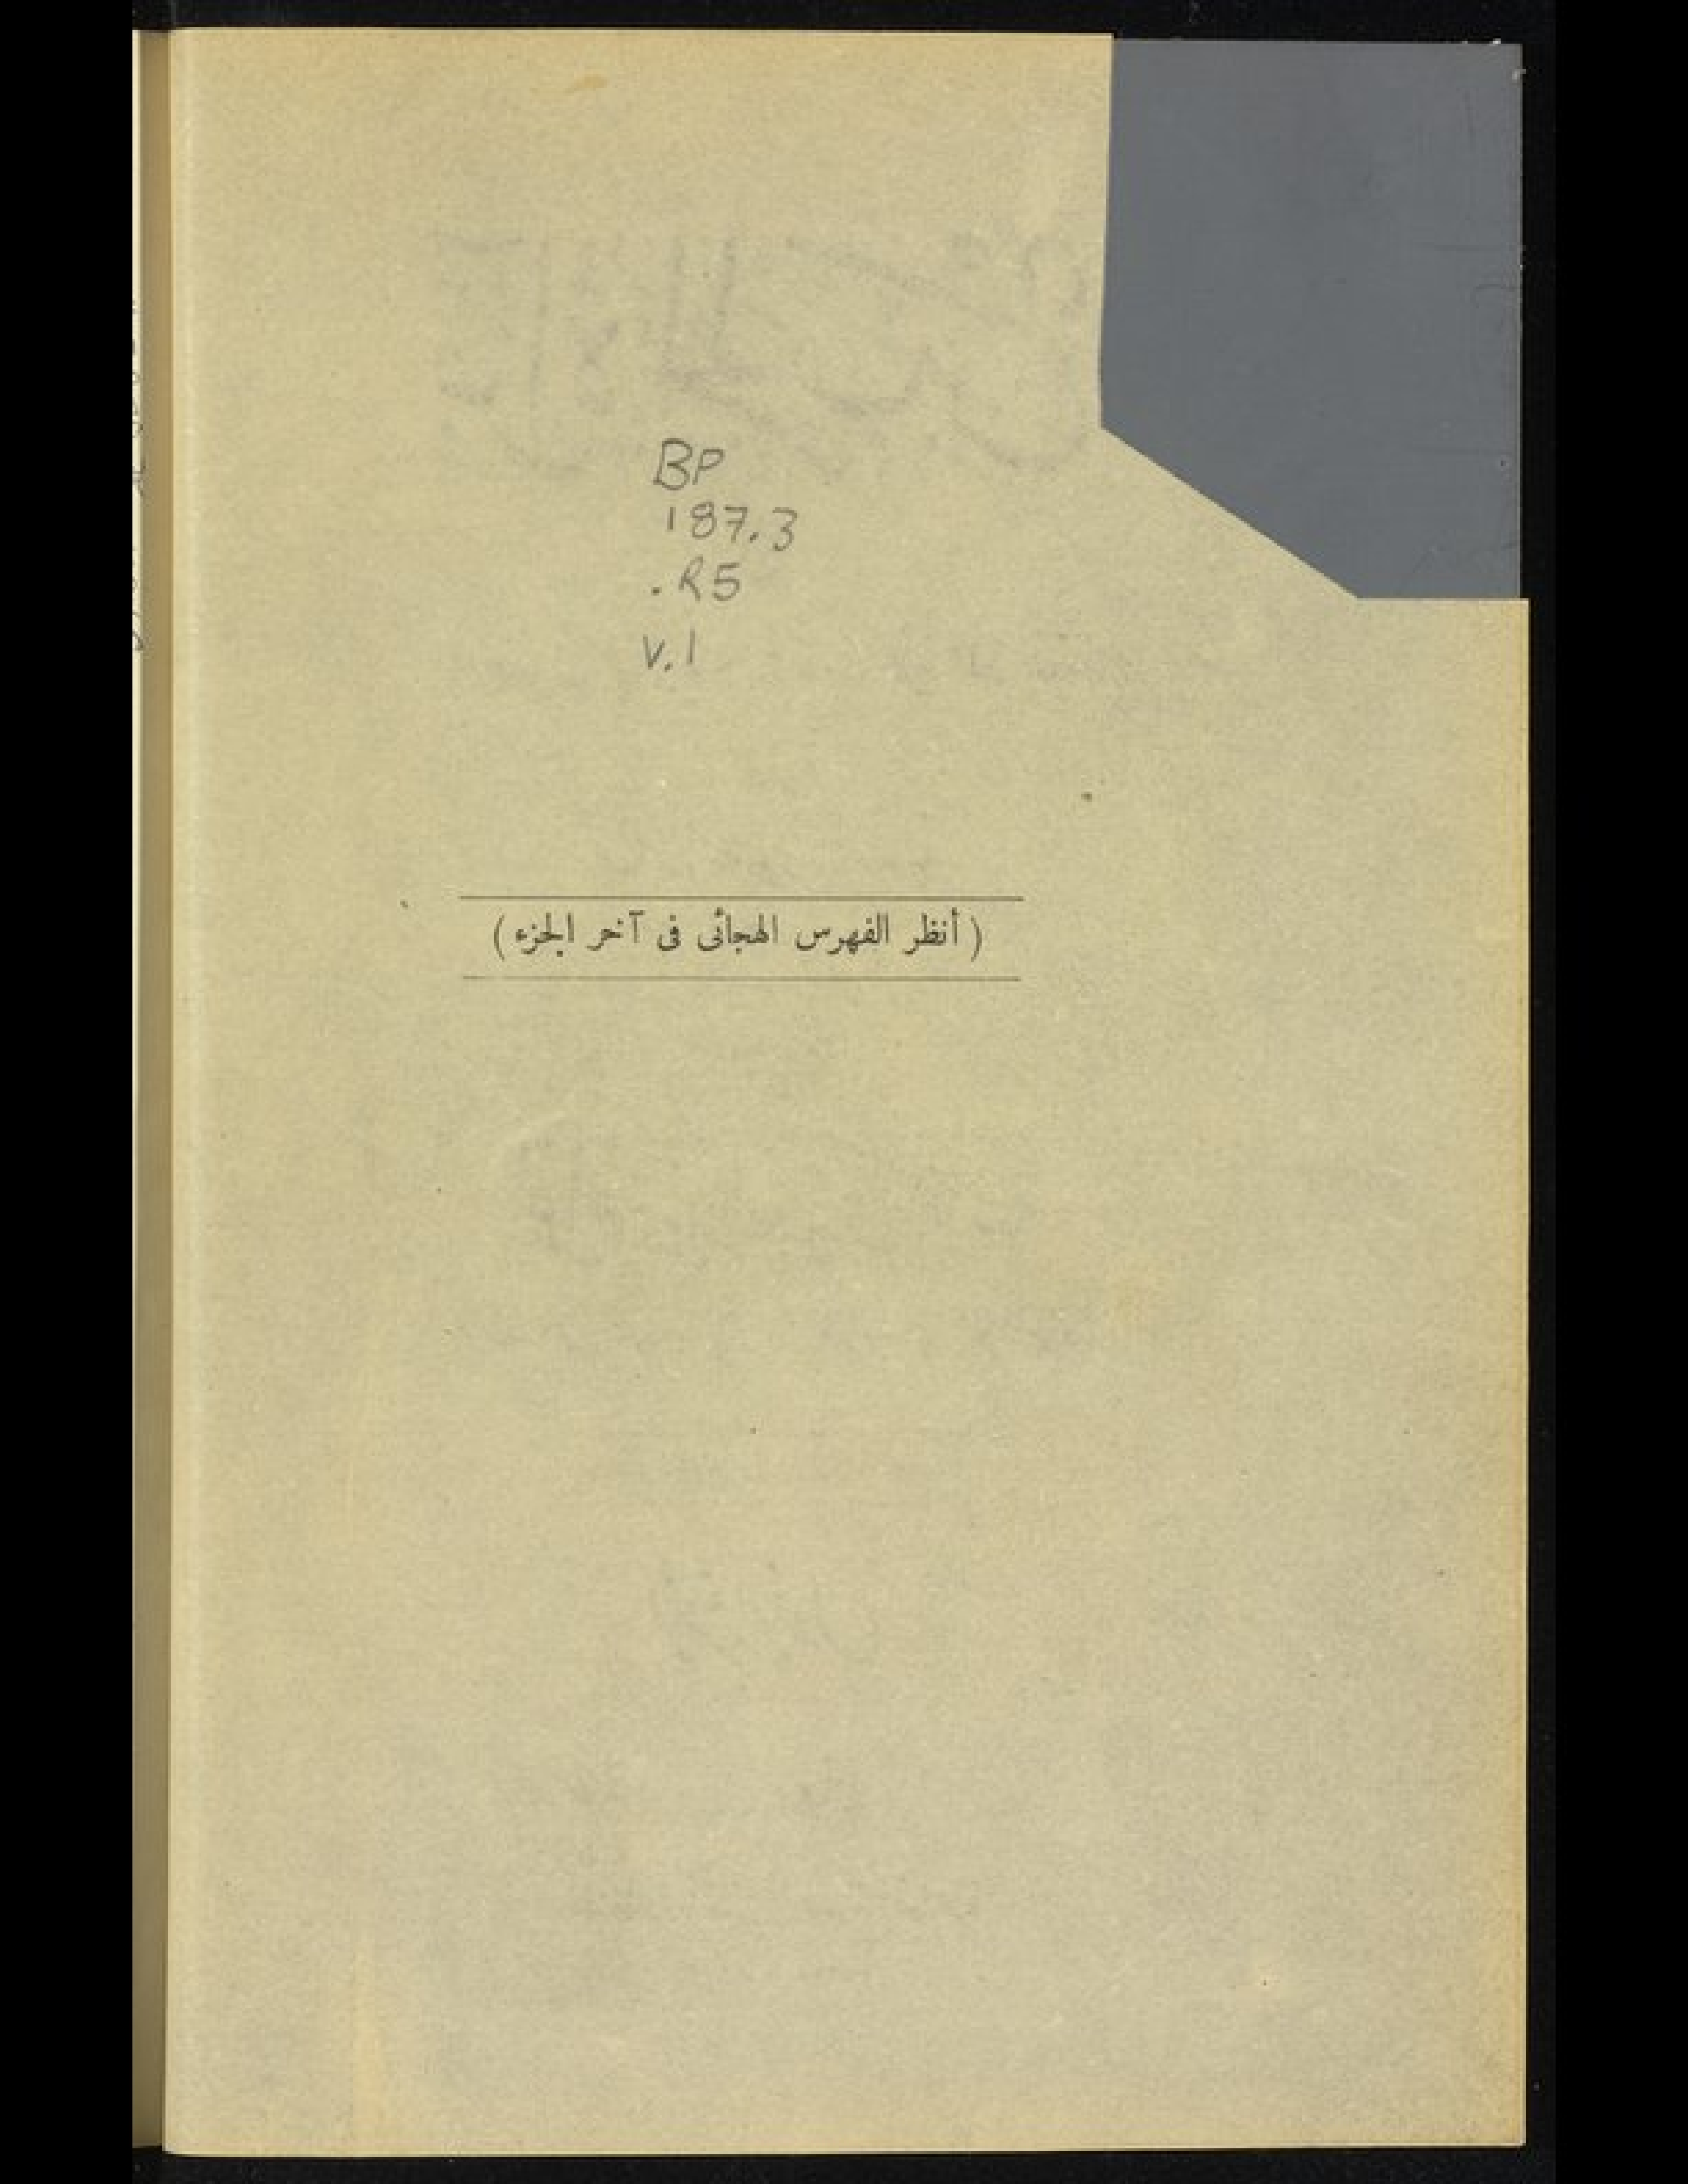 BP
187.3
.R5
v.1
( أنظر الفهرس الهجائى فى آخر الجزء )